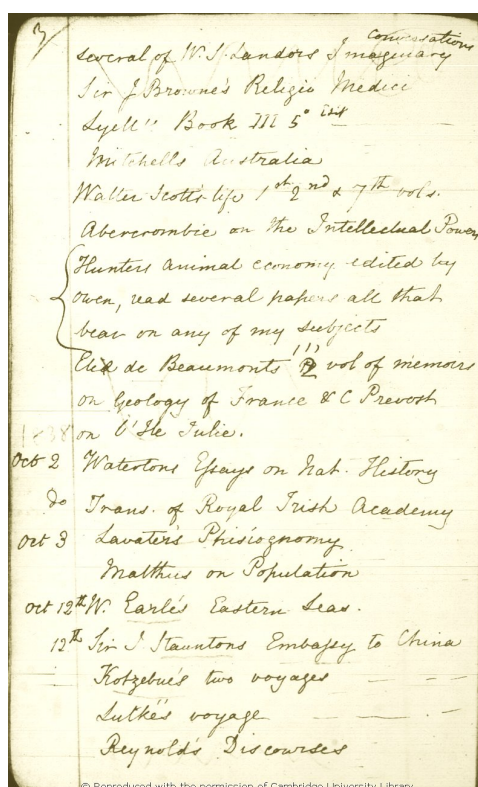 3
Conversations
several of W. S. Landors Imaginary
Sir J Browne's Religio Medici
Lyell's Book III 5° Edit
Mitchells Australia
Walter Scotts life 1st 2nd & 7th vols.
Abercrombie on the Intellectual Powers
Hunters animal economy edited by
Owen, read several papers all that
bear on any of my subjects
Elie de Beaumonts 2 vol of memoirs
on Geology of France & C Prevost
1838 on L'Ile Julie.
Oct 2 Watertons Essays on Nat. History
do Trans. of Royal Irish Academy
Oct 3 Lavater's Phisiognomy
Malthus on Population
Oct 12th W. Earle's Eastern Seas.
12th Sir J Stauntons Embassy to China
Kotzebue's two voyages
Lutke's voyage
Reynold's Discourses
© Reproduced with the permission of Cambridge University Library